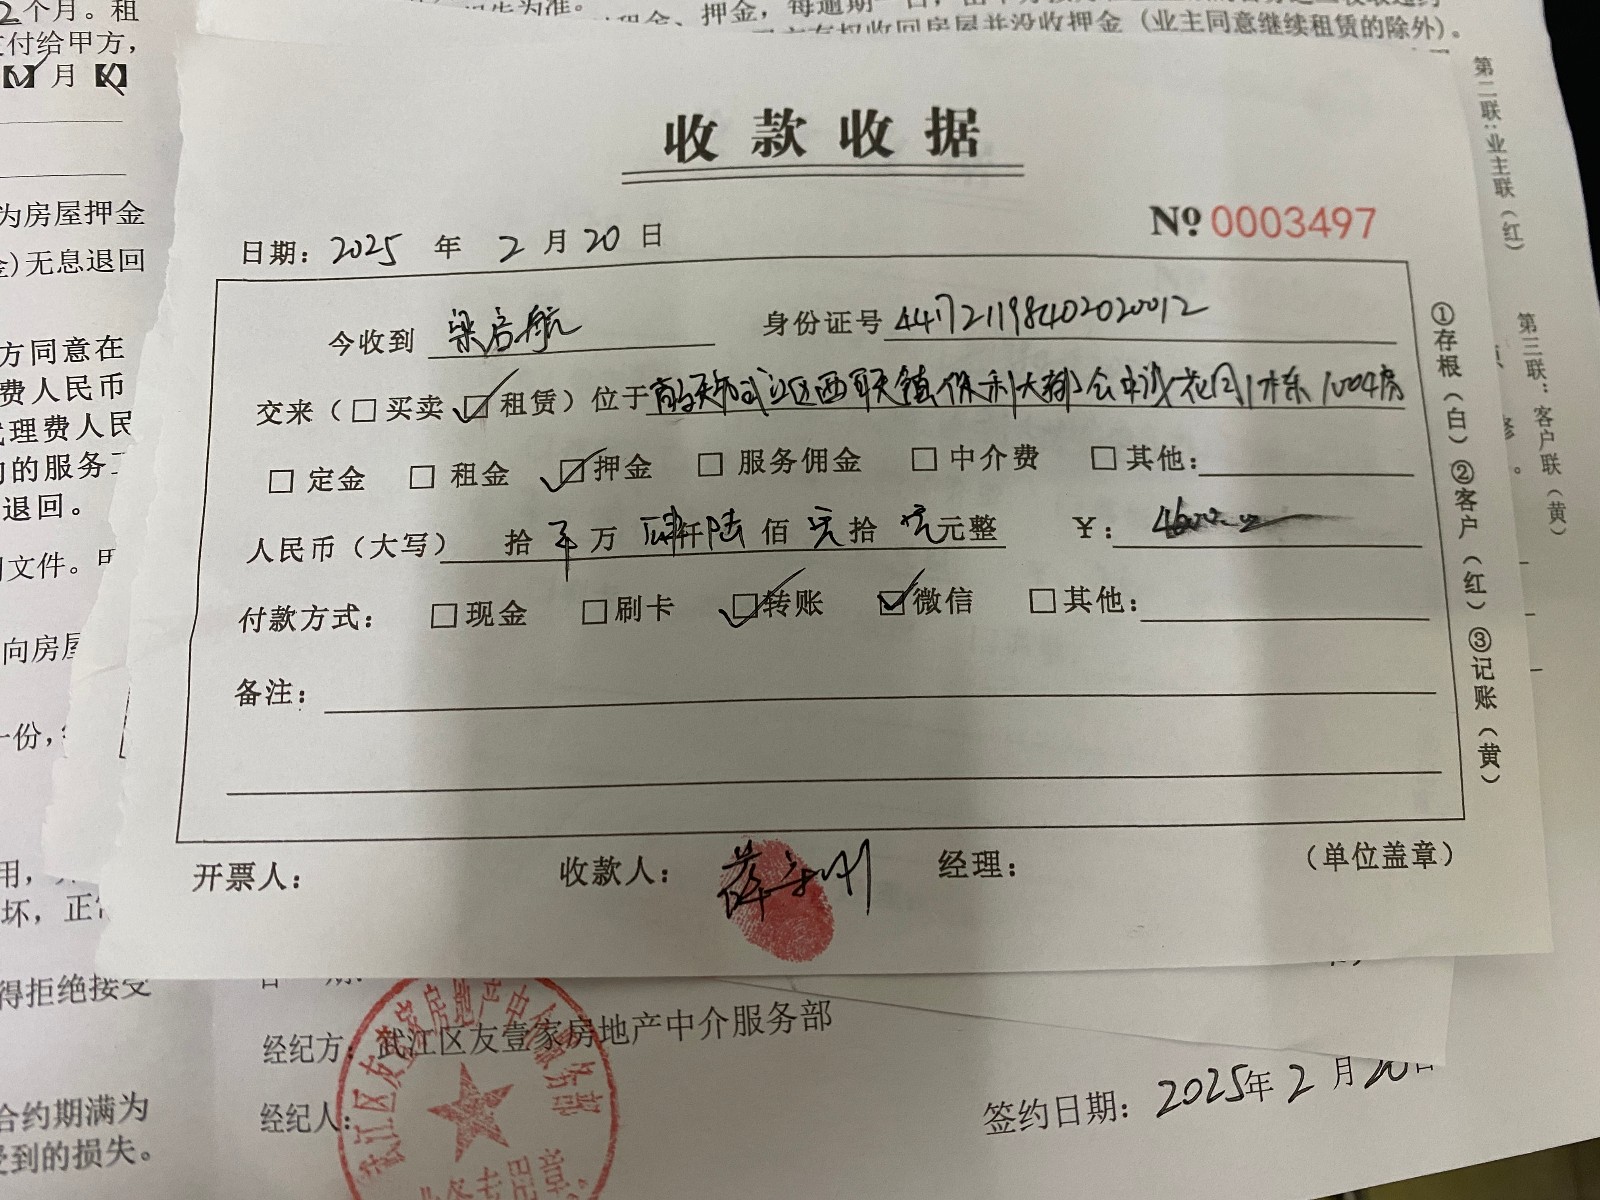 2个月。租
付给甲方,
月
为房屋押金
金)无息退回
方同意在
费人民币
代理费人民
的服务
退回。
文件。甲
向房屋
一份,
用,
坏,正
得拒绝接受
合约期满为
受到的损失。
租金、押金,每逾期一日,
有权收回房屋并没收押金(业主同意继续租赁的除外)。
收款收据
日期: 2025 年 2 月 20 日
№ 0003497
今收到 梁启航 身份证号 441721198402020012
交来(□买卖 ☑租赁)位于 武江区西联镇保利大都会中波花园1栋1004房
□定金 □租金 ☑押金 □服务佣金 □中介费 □其他:
人民币(大写) 拾 万 肆仟陆佰 元拾 元元整 ¥: 4600
付款方式: □现金 □刷卡 ☑转账 ☑微信 □其他:
备注:
开票人: 收款人: 经理: (单位盖章)
①存根(白)②客户(红)③记账(黄)
第二联:业主联(红)
第三联:客户联(黄)
经纪方: 武江区友壹家房地产中介服务部
经纪人:
武江区友壹家房地产中介服务部
业务专用章
签约日期: 2025年2月20日